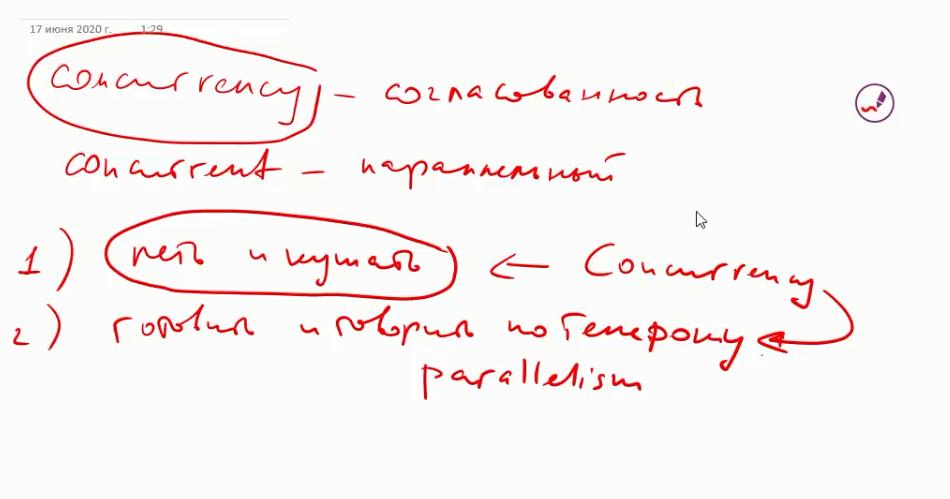 17 июня 2020 г. 1:29
concurrency – согласованность
concurrent – параллельный
1) петь и кушать ← Concurrency
2) готовил и говорил по телефону
parallelism